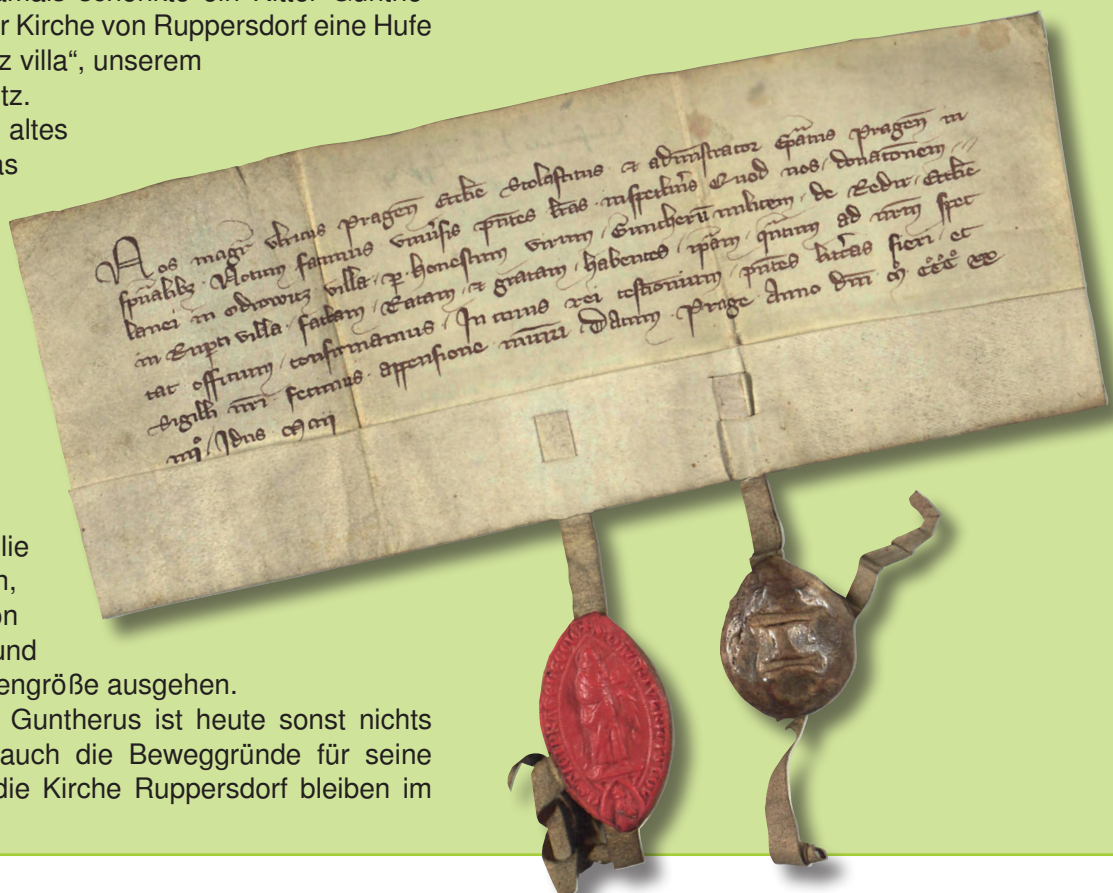 amals schenkte ein Ritter Gunthe-
r Kirche von Ruppersdorf eine Hufe
z villa“, unserem
tz.
altes
as
Nos magr̄ ulricus pragen̄ eccīe Scolasticus ⁊ administrator ep̄atus pragen̄ in
sp̄ualibꝫ Notum facimus univ̄sis pn̄tes lr̄as inspectur̄is Quod nos donatōnem
lanei in odrowitz villa p̱ honestum virum Guntherū militem de Redir eccīe
in Rupti villa factam Ratam ⁊ gratam habentes ip̄am qn̄tum ad nr̄m spec
tat officium confirmamus In cuius rei testionium pn̄tes litt̄as fieri et
Sigilli nr̄i fecimus appensione muniri Datum Prage Anno dn̄i M̊ CC̊C̊ XX
iiij̊ Idus Maij
lie
n,
on
und
engröße ausgehen.
Guntherus ist heute sonst nichts
auch die Beweggründe für seine
die Kirche Ruppersdorf bleiben im